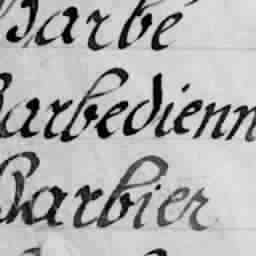 Barbé
Barbedienn
Barbier